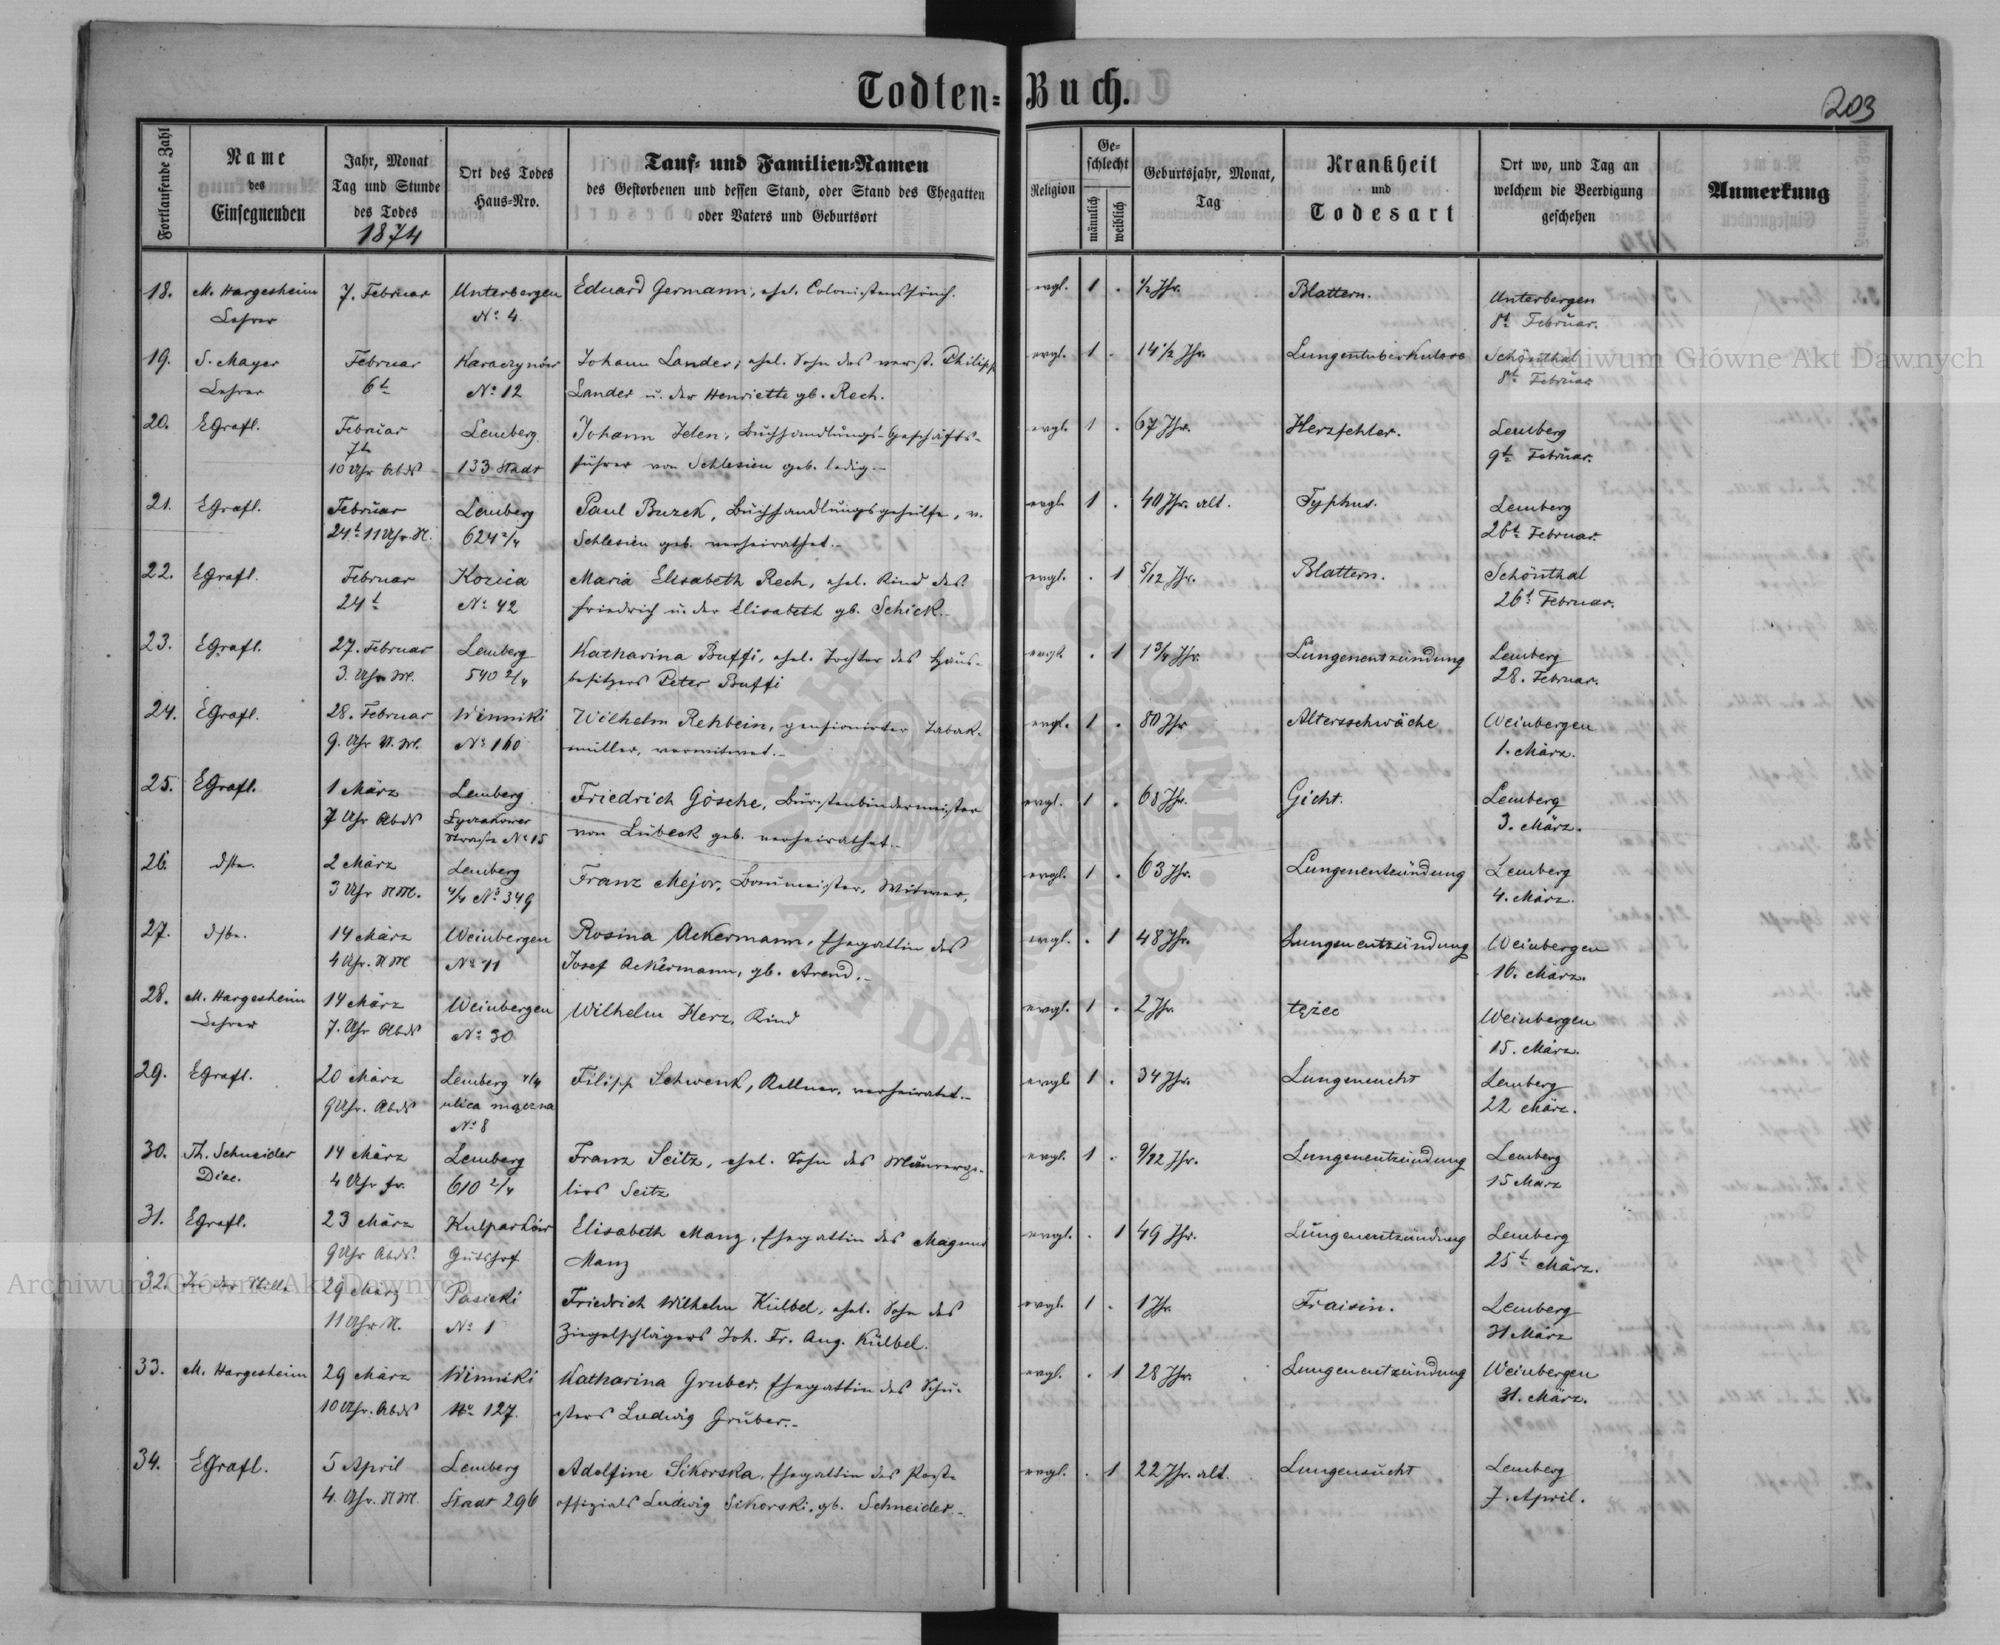 Todten-Buch.
203
Fortlaufende Zahl
Name
des
Einsegnenden
Jahr, Monat
Tag und Stunde
des Todes
1874
Ort des Todes
Haus-Nro.
Tauf- und Familien-Namen
des Gestorbenen und dessen Stand, oder Stand des Ehegatten
oder Vaters und Geburtsort
Religion
Ge-
schlecht
männlich
weiblich
Geburtsjahr, Monat,
Tag
Krankheit
und
Todesart
Ort wo, und Tag an
welchem die Beerdigung
geschehen
Anmerkung
18. M. Hargesheim 7. Februar Unterbergen Eduard Germann, ehel. evgl. 1 . ½ Jhr. Blattern. Unterbergen
Lehrer No 4 8t Februar.
19. S. Mayer Februar Karaczynów Johann Lander, ehel. Sohn des verst. Philipp evgl. 1 . 14½ Jhr. Lungentuberkulose Schönthal
Lehrer 6t No 12 Lander u. der Henriette gb. Rech. 8t Februar
20. EGrafl. Februar Lemberg Johann Jelen, Buchhandlungs-Geschäfts- evgl. 1 . 67 Jhr. Herzfehler. Lemberg
7t
10 Uhr Abds 133 Stadt führer von Schlesien geb. ledig.- 9t Februar.
21. EGrafl. Februar Lemberg Paul Buzek, Buchhandlungsgehilfe, v. evgl. 1 . 40 Jhr. alt. Typhus. Lemberg
24t 11 Uhr N. 624 2/4 Schlesien geb. verheirathet.- 26t Februar.
22. EGrafl. Februar Kozica Maria Elisabeth Rech, ehel. Kind des evgl. . 1 5/12 Jhr. Blattern. Schönthal
24t No 42 Friedrich u. der Elisabeth gb. Schick.- 26t Februar.
23. EGrafl. 27. Februar Lemberg Katharina Buffi, ehel. Tochter des Haus- evgl. . 1 1¾ Jhr. Lungenentzündung Lemberg
3. Uhr M. 540 2/4 besitzers Peter Buffi 28. Februar.
24. EGrafl. 28. Februar Winniki Wilhelm Rehbein, pensionirter Tabak- evgl. 1 . 80 Jhr Altersschwäche Weinbergen
9. Uhr V. M. No 160 müller, verwitwet.- 1. März.
25. EGrafl. 1 März Lemberg Friedrich Gösche, Bürstenbindermeister evgl. 1 . 68 Jhr. Gicht. Lemberg
7 Uhr Abds Lyczakower von Lübeck geb. verheirathet.- 3. März.
Strasse No 15
26. dsbe. 2 März Lemberg Franz Mejor, Baumeister, Witwer, evgl. 1 . 63 Jhr. Lungenentzündung Lemberg
3 Uhr NM. 4/4 No 349 4. März.
27. dsbe. 14 März Weinbergen Rosina Ackermann, Ehegattin des evgl. . 1 48 Jhr. Lungenentzündung Weinbergen
4 Uhr. NM No 11 Josef Ackermann, gb. Arend.- 16. März.
28. M. Hargesheim 14 März Weinbergen Wilhelm Herz, Kind evgl. 1 . 2 Jhr. tężec Weinbergen
Lehrer 7. Uhr Abds No 30 15. März.
29. EGrafl. 20 März Lemberg 4/4 Filipp Schwenk, Kellner, verheiratet.- evgl. 1 . 34 Jhr. Lungensucht Lemberg
9 Uhr. Abds ulica 22 März.
No 8
30. Th. Schneider 14 März Lemberg Franz Seitz, ehel. Sohn des evgl. 1 . 9/12 Jhr. Lungenentzündung Lemberg
Diac. 4 Uhr fr. 610 2/4 Seitz 15 März
31. EGrafl. 23 März Kulparków Elisabeth Manz, Ehegattin des Magnus evgl. . 1 49 Jhr. Lungenentzündung Lemberg
9 Uhr Abds. Gutshof Manz 25t März.
32. 29 März Pasieki Friedrich Wilhelm Külbel, ehel. Sohn des evgl. 1 . 1 Jhr. Fraisin. Lemberg
11 Uhr N. No 1 Ziegelschlägers Joh. Fr. Aug. Külbel. 31 März
33. M. Hargesheim 29 März Winniki Katharina Gruber, Ehegattin des Schu- evgl. . 1 28 Jhr. Lungenentzündung Weinbergen
10 Uhr. Abds No 127. sters Ludwig Gruber.- 31. März.
34. EGrafl. 5 April Lemberg Adolfine Sikorska, Ehegattin des Post- evgl. . 1 22 Jhr. alt. Lungensucht Lemberg
4. Uhr. NM. Stadt 296 offizials Ludwig Sikorski, gb. Schneider.- 7. April.
Archiwum Główne Akt Dawnych
Archiwum Główne Akt Dawnych